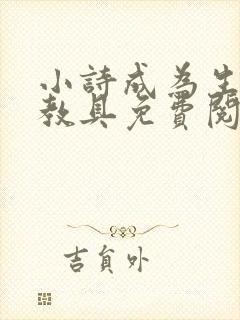 小詩成為生
教具免費閱
吉負外